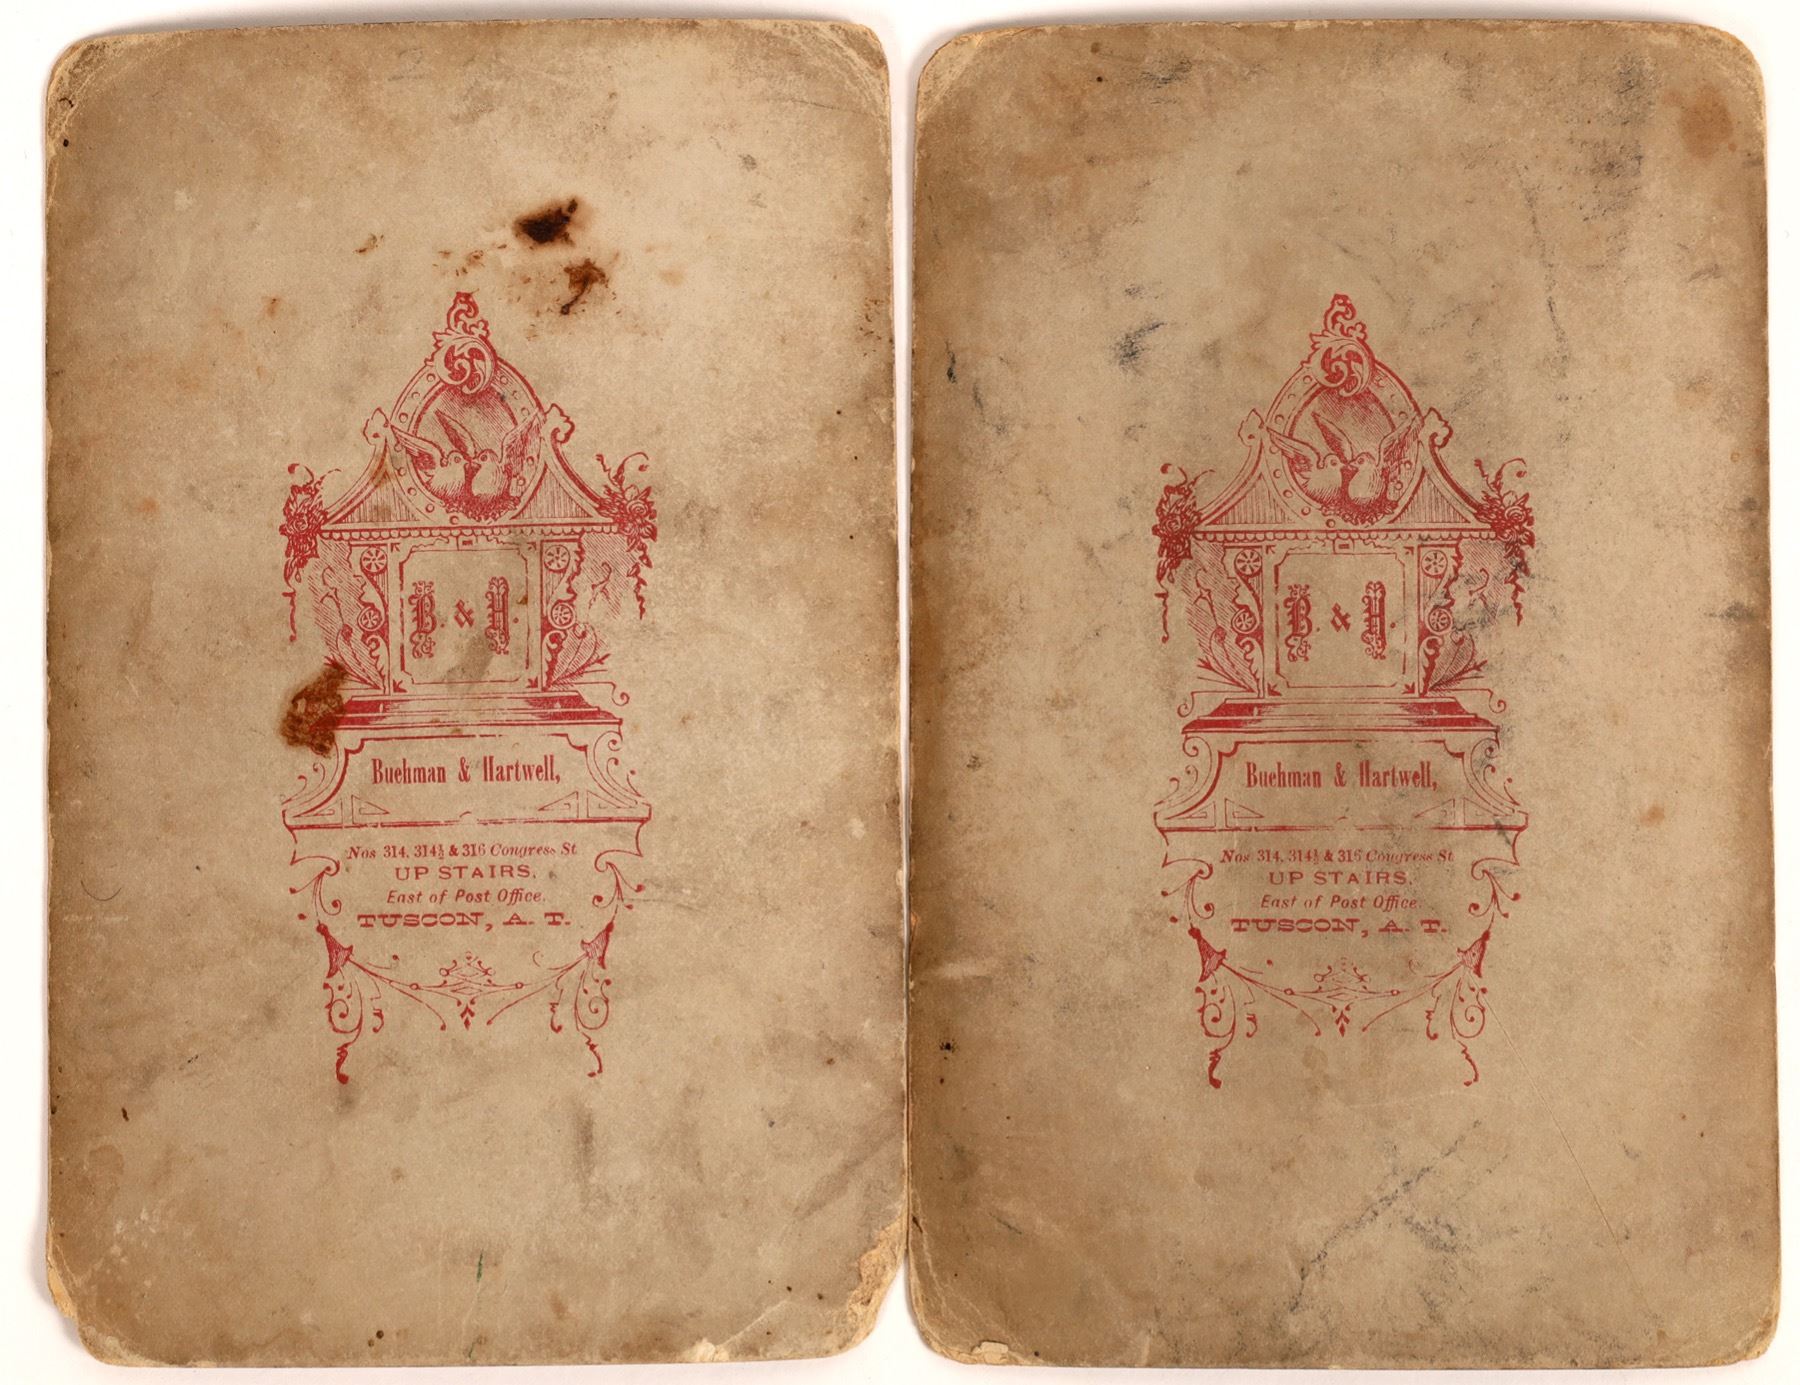 B. & H.
Buehman & Hartwell,
Nos 314, 314½ & 316 Congress St
UP STAIRS.
East of Post Office.
TUSCON, A. T.
B. & H.
Buehman & Hartwell,
Nos 314, 314½ & 316 Congress St
UP STAIRS.
East of Post Office.
TUSCON, A. T.